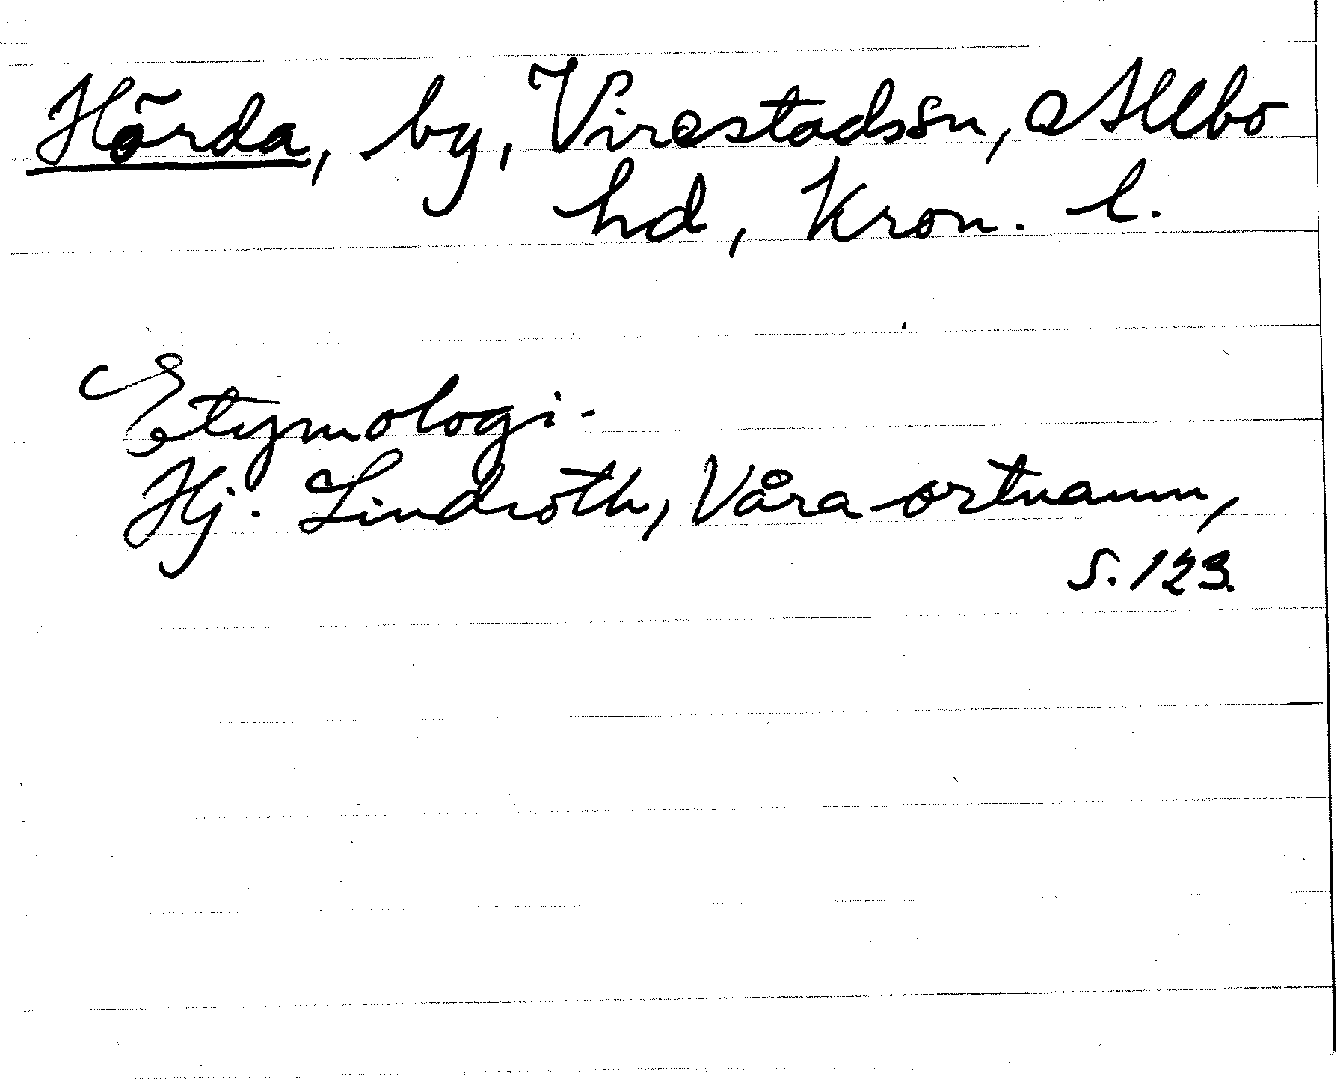 Hörda, by, Virestadssn, Allbo
hd, Kron. l.
Etymologi.
Hj. Lindroth, Våra ortnamn,
s. 123.